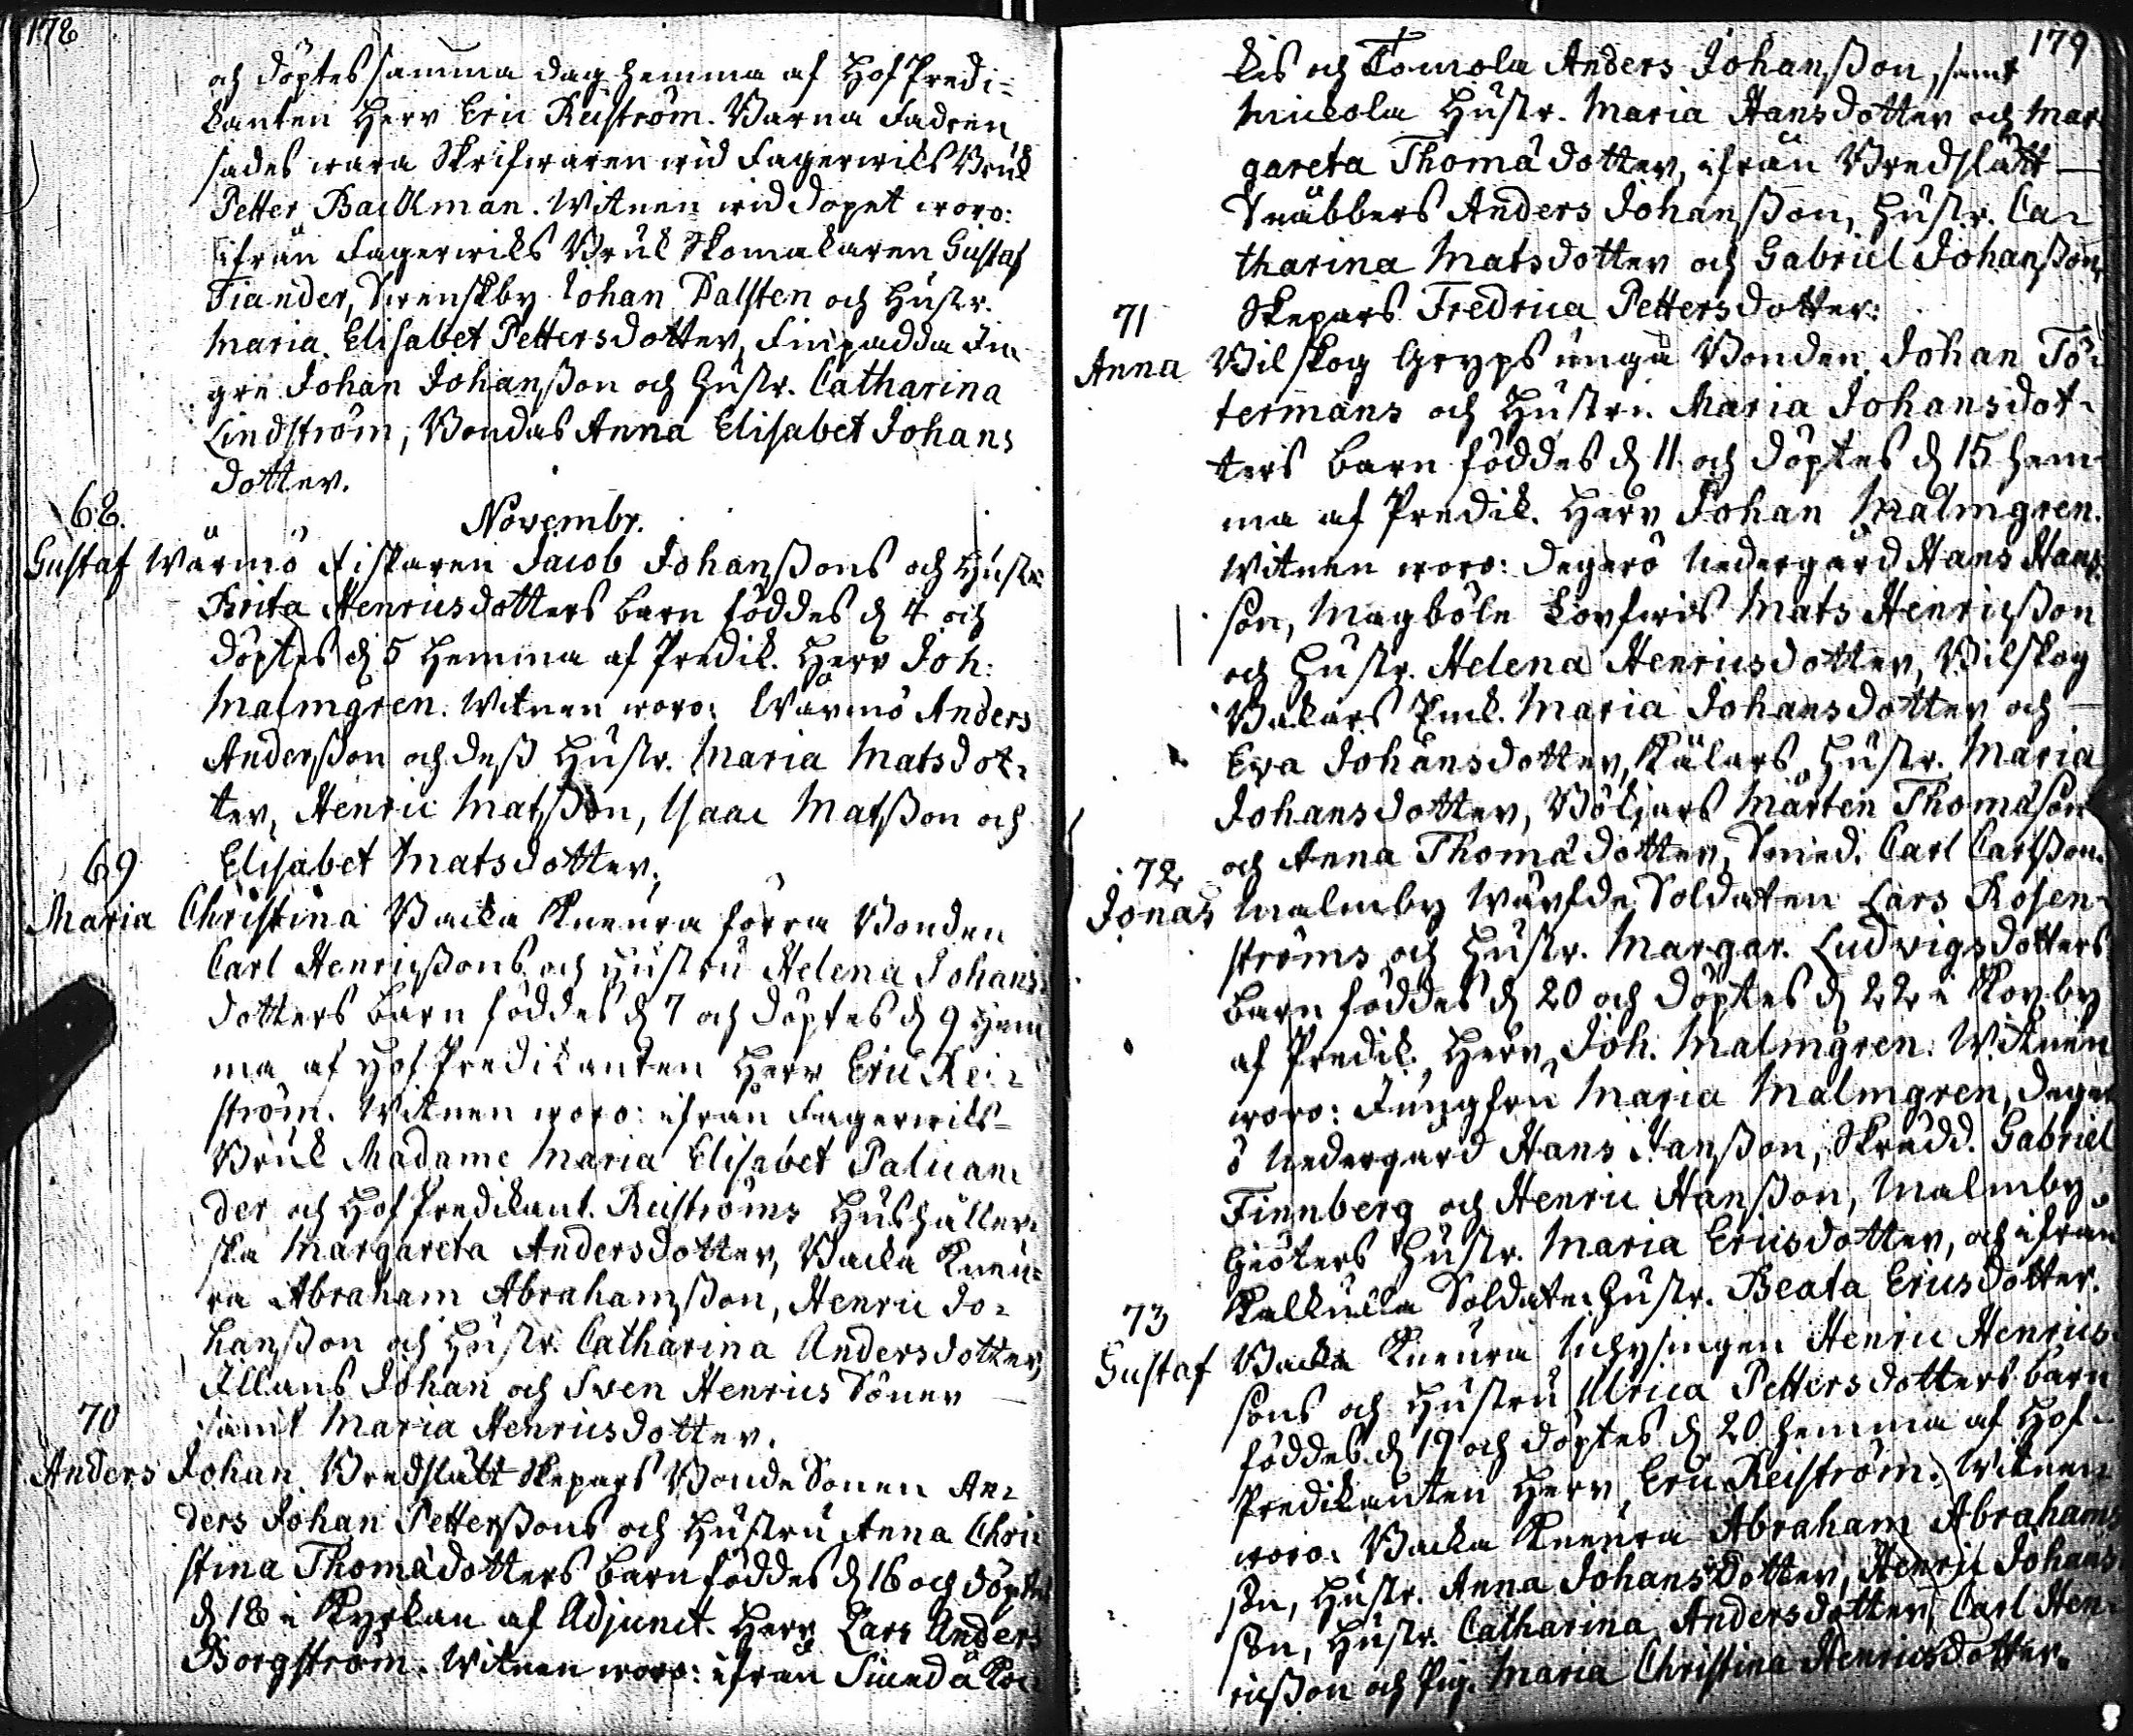 178
och döptes samma dag hemma af Hof Predi=
kanten Herr Eric Reiström. Barna Fadren
sades wara Skrifwaren wid Fagerwiks Bruk
Petter Backman. Witnen wid dopet woro:
ifrån Fagerwiks Bruk Skomakaren Gustaf
Fiander, Svenskby Johan Dalsten och Hustr.
Maria Elisabet Pettersdotter, Finpadda In
gre Johan Johansson och Hustr. Catharina
Lindström, Bondas Anna Elisabet Johans
dotter.
68.
Novembr.
Gustaf Wärmö Fiskaren Jacob Johanssons och Hustr.
Brita Henricsdotters barn föddes d 4 och
döptes d 5 hemma af Predik. Herr Joh:
Malmgren. Witnen woro: Wärmö Anders
Andersson och dess Hustr. Maria Matsdot=
ter, Henric Matsson, Isaac Matsson och
69 Elisabet Matsdotter.
Maria Christina Backa Kneura förra Bonden
Carl Henricssons och Hustru Helena Johans
dotters barn föddes d 7 och döptes d 9 hem
ma af Hof Predikanten Herr Eric Rei=
ström. Witnen woro: ifrån Fagerwiks=
Bruk Madame Maria Elisabet Palican=
der och Hof Predikant. Reiströms Hushåller=
ska Margareta Andersdotter, Backa Kneu=
ra Abraham Abrahamsson, Henric Jo=
hansson och Hustr. Catharina Andersdotter,
Illans Johan och Sven Henrics Söner
70 samt Maria Henricsdotter.
Anders Johan Bredslätt Skepars Bonde Sonen An=
ders Johan Petterssons och Hustru Anna Chri=
stina Thomädotters barn föddes d 16 och döptes
d 18 i Kyrkan af Adjunct. Herr Lars Anders
Borgström. Witnen woro: ifrån Smedå Koc
179
kis och Tomola Anders Johansson, samt
Mickola Hustr. Maria Hansdotter och Mar
gareta Thomädotter, ifrån Bredslätt
Snäbbers Anders Johansson, Hustr. Ca=
tharina Matsdotter och Gabriel Johansson,
71 Skepars Fredrica Pettersdotter.
Anna Bilskog Gryps unga Bonden Johan Tö=
termans och Hustr. Maria Johansdot=
ters barn föddes d 11 och döptes d 15 hem=
ma af Predik. Herr Johan Malmgren.
Witnen woro: Degerö Nedergård Hans Hans=
son, Magböle Korfwis Mats Henricsson
och Hustr. Helena Henricsdotter, Bilskog
Bakars Maria Johansdotter och
Ewa Johansdotter, Kälars Hustr. Maria
Johansdotter, Bökjars Mårten Thomäson
72 och Anna Thomädotter, Smed. Carl Carlsson.
Jonas Malmby wärfde Soldaten Lars Rosen=
ströms och Hustr. Margar. Ludvigsdotters
barn föddes d 20 och döptes d 22 i Kovby
af Predik. Herr Joh. Malmgren. Witnen
woro: Jungfru Maria Malmgren, Deger
ö Nedergård Hans Hansson, Skrädd. Gabriel
Finnberg och Henric Hansson, Malmby
Giöters Hustr. Maria Ericsdotter, och ifrån
73 Kallkulla Soldate Hustr. Beata Ericsdotter.
Gustaf Backa Kneura Inhysingen Henric Henrics
sons och Hustru Ulrica Pettersdotters barn
föddes d 19 och döptes d 20 hemma af Hof=
Predikanten Herr Eric Reiström. Witnen
woro: Backa Kneura Abraham Abrahams
son, Hustr. Anna Johansdotter, Henric Johans
son, Hustr. Catharina Andersdotter, Carl Hen=
ricsson och Pig. Maria Christina Henricsdotter.